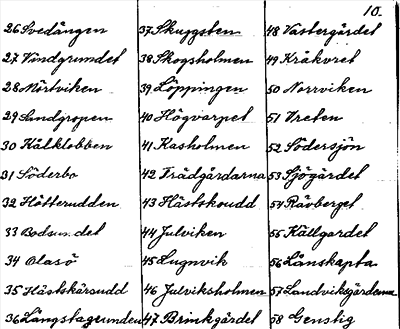 10.
26 Svedängen
27 Vindgrundet
28 Mörtviken
29 Sandgropen
30 Kålklobben
31 Söderbo
32 Hötterudden
33
34 Olasö
35 Hästskärsudd
36
37 Skuggsten
38 Skogsholmen
39 Löppingen
40 Högvarpet
41 Kasholmen
42 Trädgårdarna
43 Hästskoudd
44 Julviken
45 Lugnvik
46 Julviksholmen
47 Brinkgärdet
48 Västergärdet
49 Kråkvret
50 Norrviken
51 Vreten
52 Södersjön
53 Sjögärdet
54 Rävberget
55 Källgärdet
56 Lånskapta
57 Landvikgärdena
58 Genstig